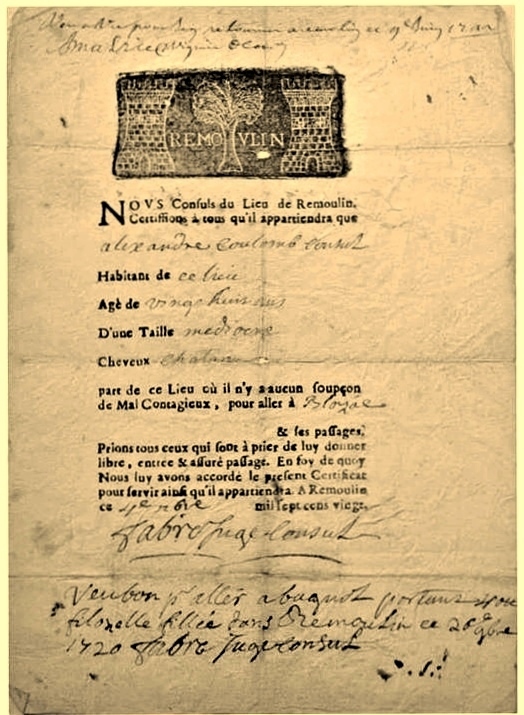 pour retourner a ce 9e 
REMOVLIN
NOVS Consuls du Lieu de Remoulin.
Certifions à tous qu'il appartiendra que
alexandre coulomb consul
Habitant de ce lieu
Agé de vingt huit ans
D'une Taille mediocre
Cheveux chatan
part de ce Lieu où il n'y a aucun soupçon
de Mal Contagieux, pour aller à
& ses passages,
Prions tous ceux qui sont à prier de luy donner
libre, entrée & assuré passage. En foy de quoy
Nous luy avons accordé le present Certificat
pour servir ainsi qu'il appartiendra. A Remoulin
ce 4e nbre mil sept cens vingt,
fabre Juge Consul
Veu bon pr aller a portant
filozelle dans Remoulin ce 26e
1720 fabre Juge consul